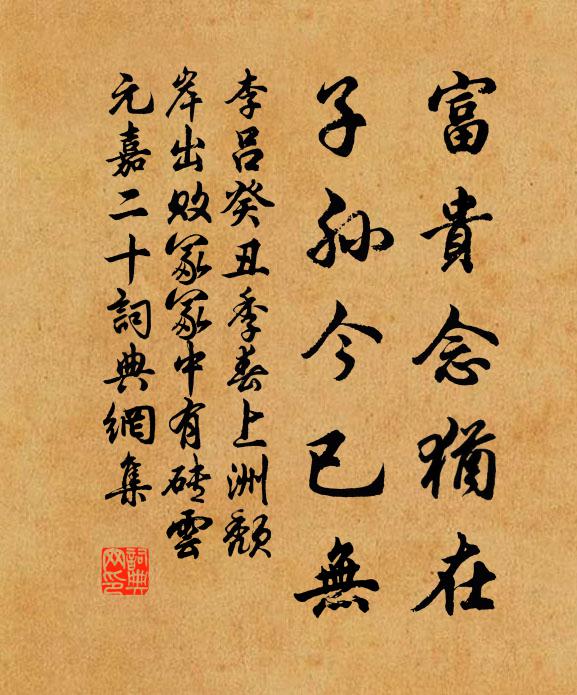 富貴念猶在
子孫今已無
李吕癸丑季春上洲頽
岸出敗冢冢中有磚雲
元嘉二十詞典網集
詞典
网印